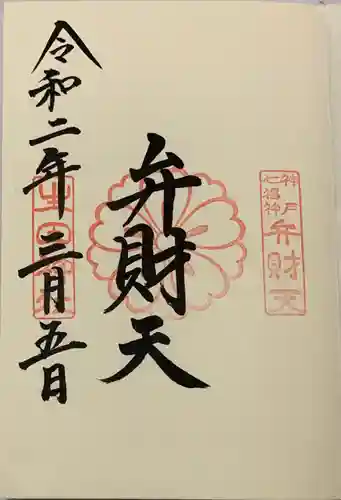 神戸
七福神
弁財天
弁財天
令和二年三月五日